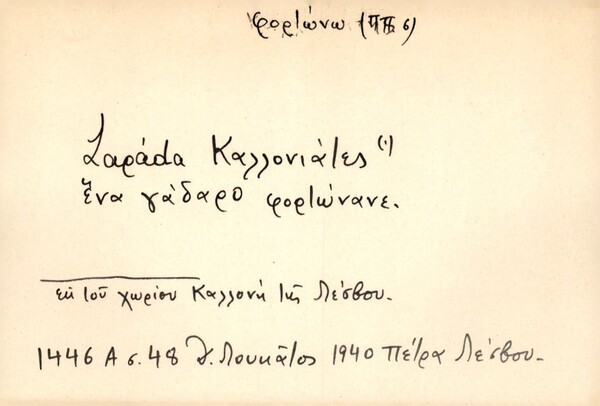 φορτώνω (ΠΠ 6)
Σαράdα Καλλονιάτες (1)
ἕνα γάδαρο φορτώνανε.
ἐκ τοῦ χωρίου Καλλονή τῆς Λέσβου.
1446 Α σ. 48 Δ. Λουκᾶτος 1940 Πέτρα Λέσβου.